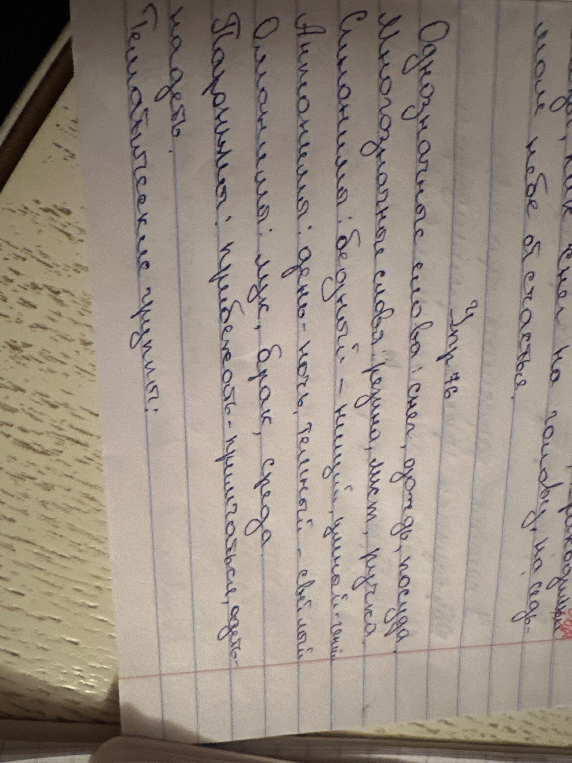 как снег на голову, на седь-
мом небе от счастья.
Упр 76
Однозначные слова: снег, дождь, посуда.
Многозначные слова: резина, лист, ручка.
Синонимы: бедный - нищий, умный - гений
Антонимы: день - ночь, темный - светлый
Омонимы: лук, брак, среда.
Паронимы: прибежать - примчаться, одеть -
надеть.
Тематические группы: